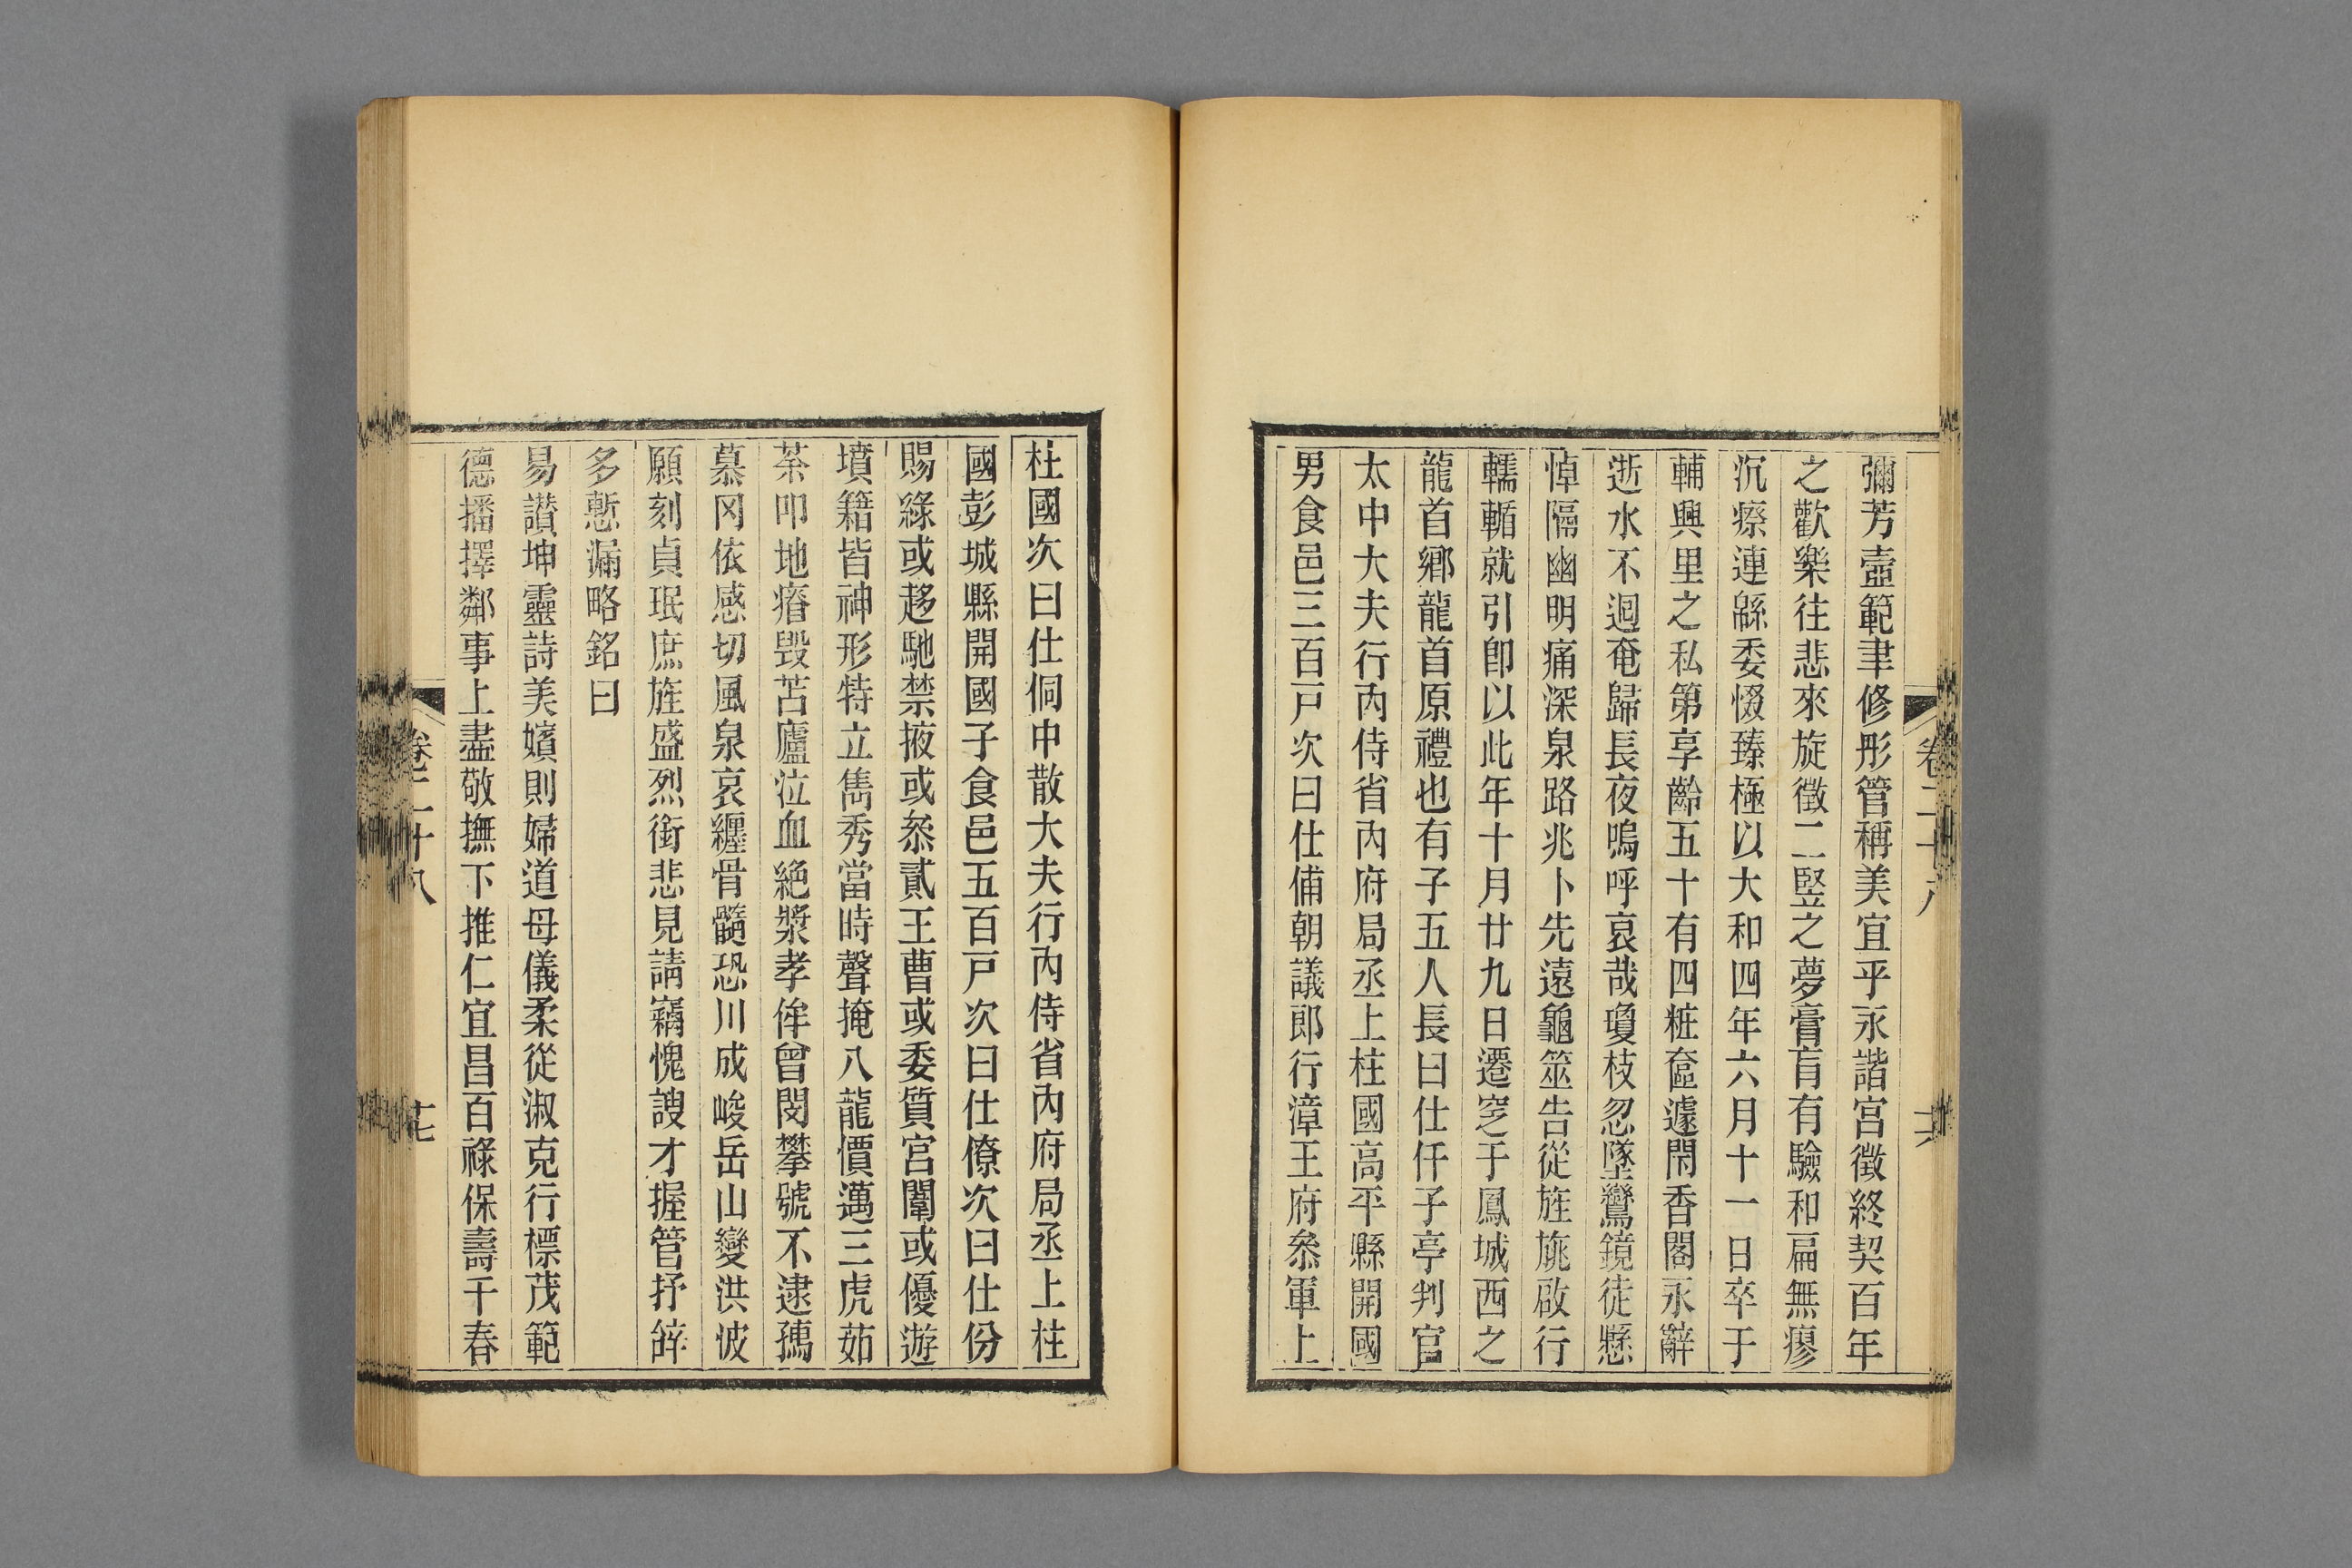 彌芳壼範聿修彤管稱美宜乎永諧宮徵終契百年
之歡樂往悲來旋徵二豎之夢膏肓有驗和扁無瘳
沉瘵連緜委惙臻極以大和四年六月十一日卒于
輔興里之私第享齡五十有四粧奩遽閉香閣永辭
逝水不迴奄歸長夜嗚呼哀哉瓊枝忽墜鸞鏡徒懸
悼隔幽明痛深泉路兆卜先遠龜筮告從旌旐啟行
轜輴就引卽以此年十月廿九日遷窆于鳳城西之
龍首鄉龍首原禮也有子五人長曰仕仟子亭判官
太中大夫行內侍省內府局丞上柱國高平縣開國
男食邑三百戸次曰仕俌朝議郎行漳王府叅軍上
杜國次曰仕侗中散大夫行內侍省內府局丞上柱
國彭城縣開國子食邑五百戸次曰仕僚次曰仕份
賜綠或趍馳禁掖或叅貳王曹或委質宮闈或優遊
墳籍皆神形特立雋秀當時聲掩八龍價邁三虎茹
荼叩地瘠毀苫廬泣血絕漿孝侔曾閔攀號不逮孺
慕罔依感切風泉哀纏骨髓恐川成峻岳山變洪波
願刻貞珉庶旌盛烈銜悲見請竊愧謏才握管抒辤
多慙漏略銘曰
易讃坤靈詩美嬪則婦道母儀柔從淑克行標茂範
德播擇鄰事上盡敬撫下推仁宜昌百祿保壽千春
卷二十八
十七